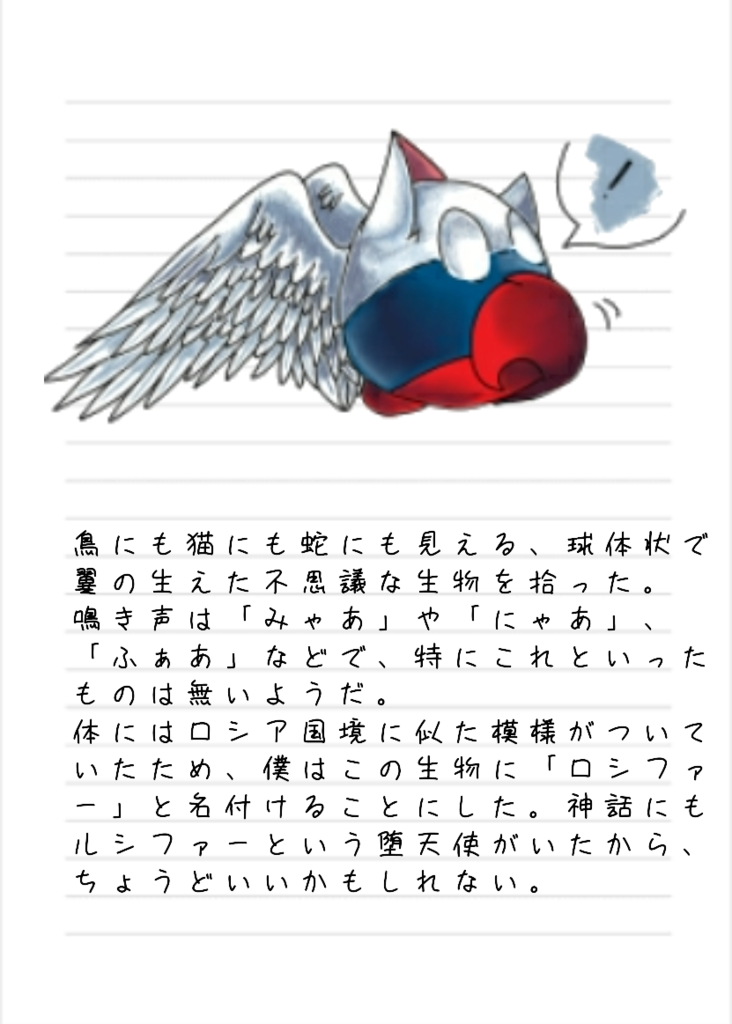 ！
鳥にも猫にも蛇にも見える、球体状で
翼の生えた不思議な生物を拾った。
鳴き声は「みゃあ」や「にゃあ」、
「ふぁあ」などで、特にこれといった
ものは無いようだ。
体にはロシア国境に似た模様がついて
いたため、僕はこの生物に「ロシファ
ー」と名付けることにした。神話にも
ルシファーという堕天使がいたから、
ちょうどいいかもしれない。